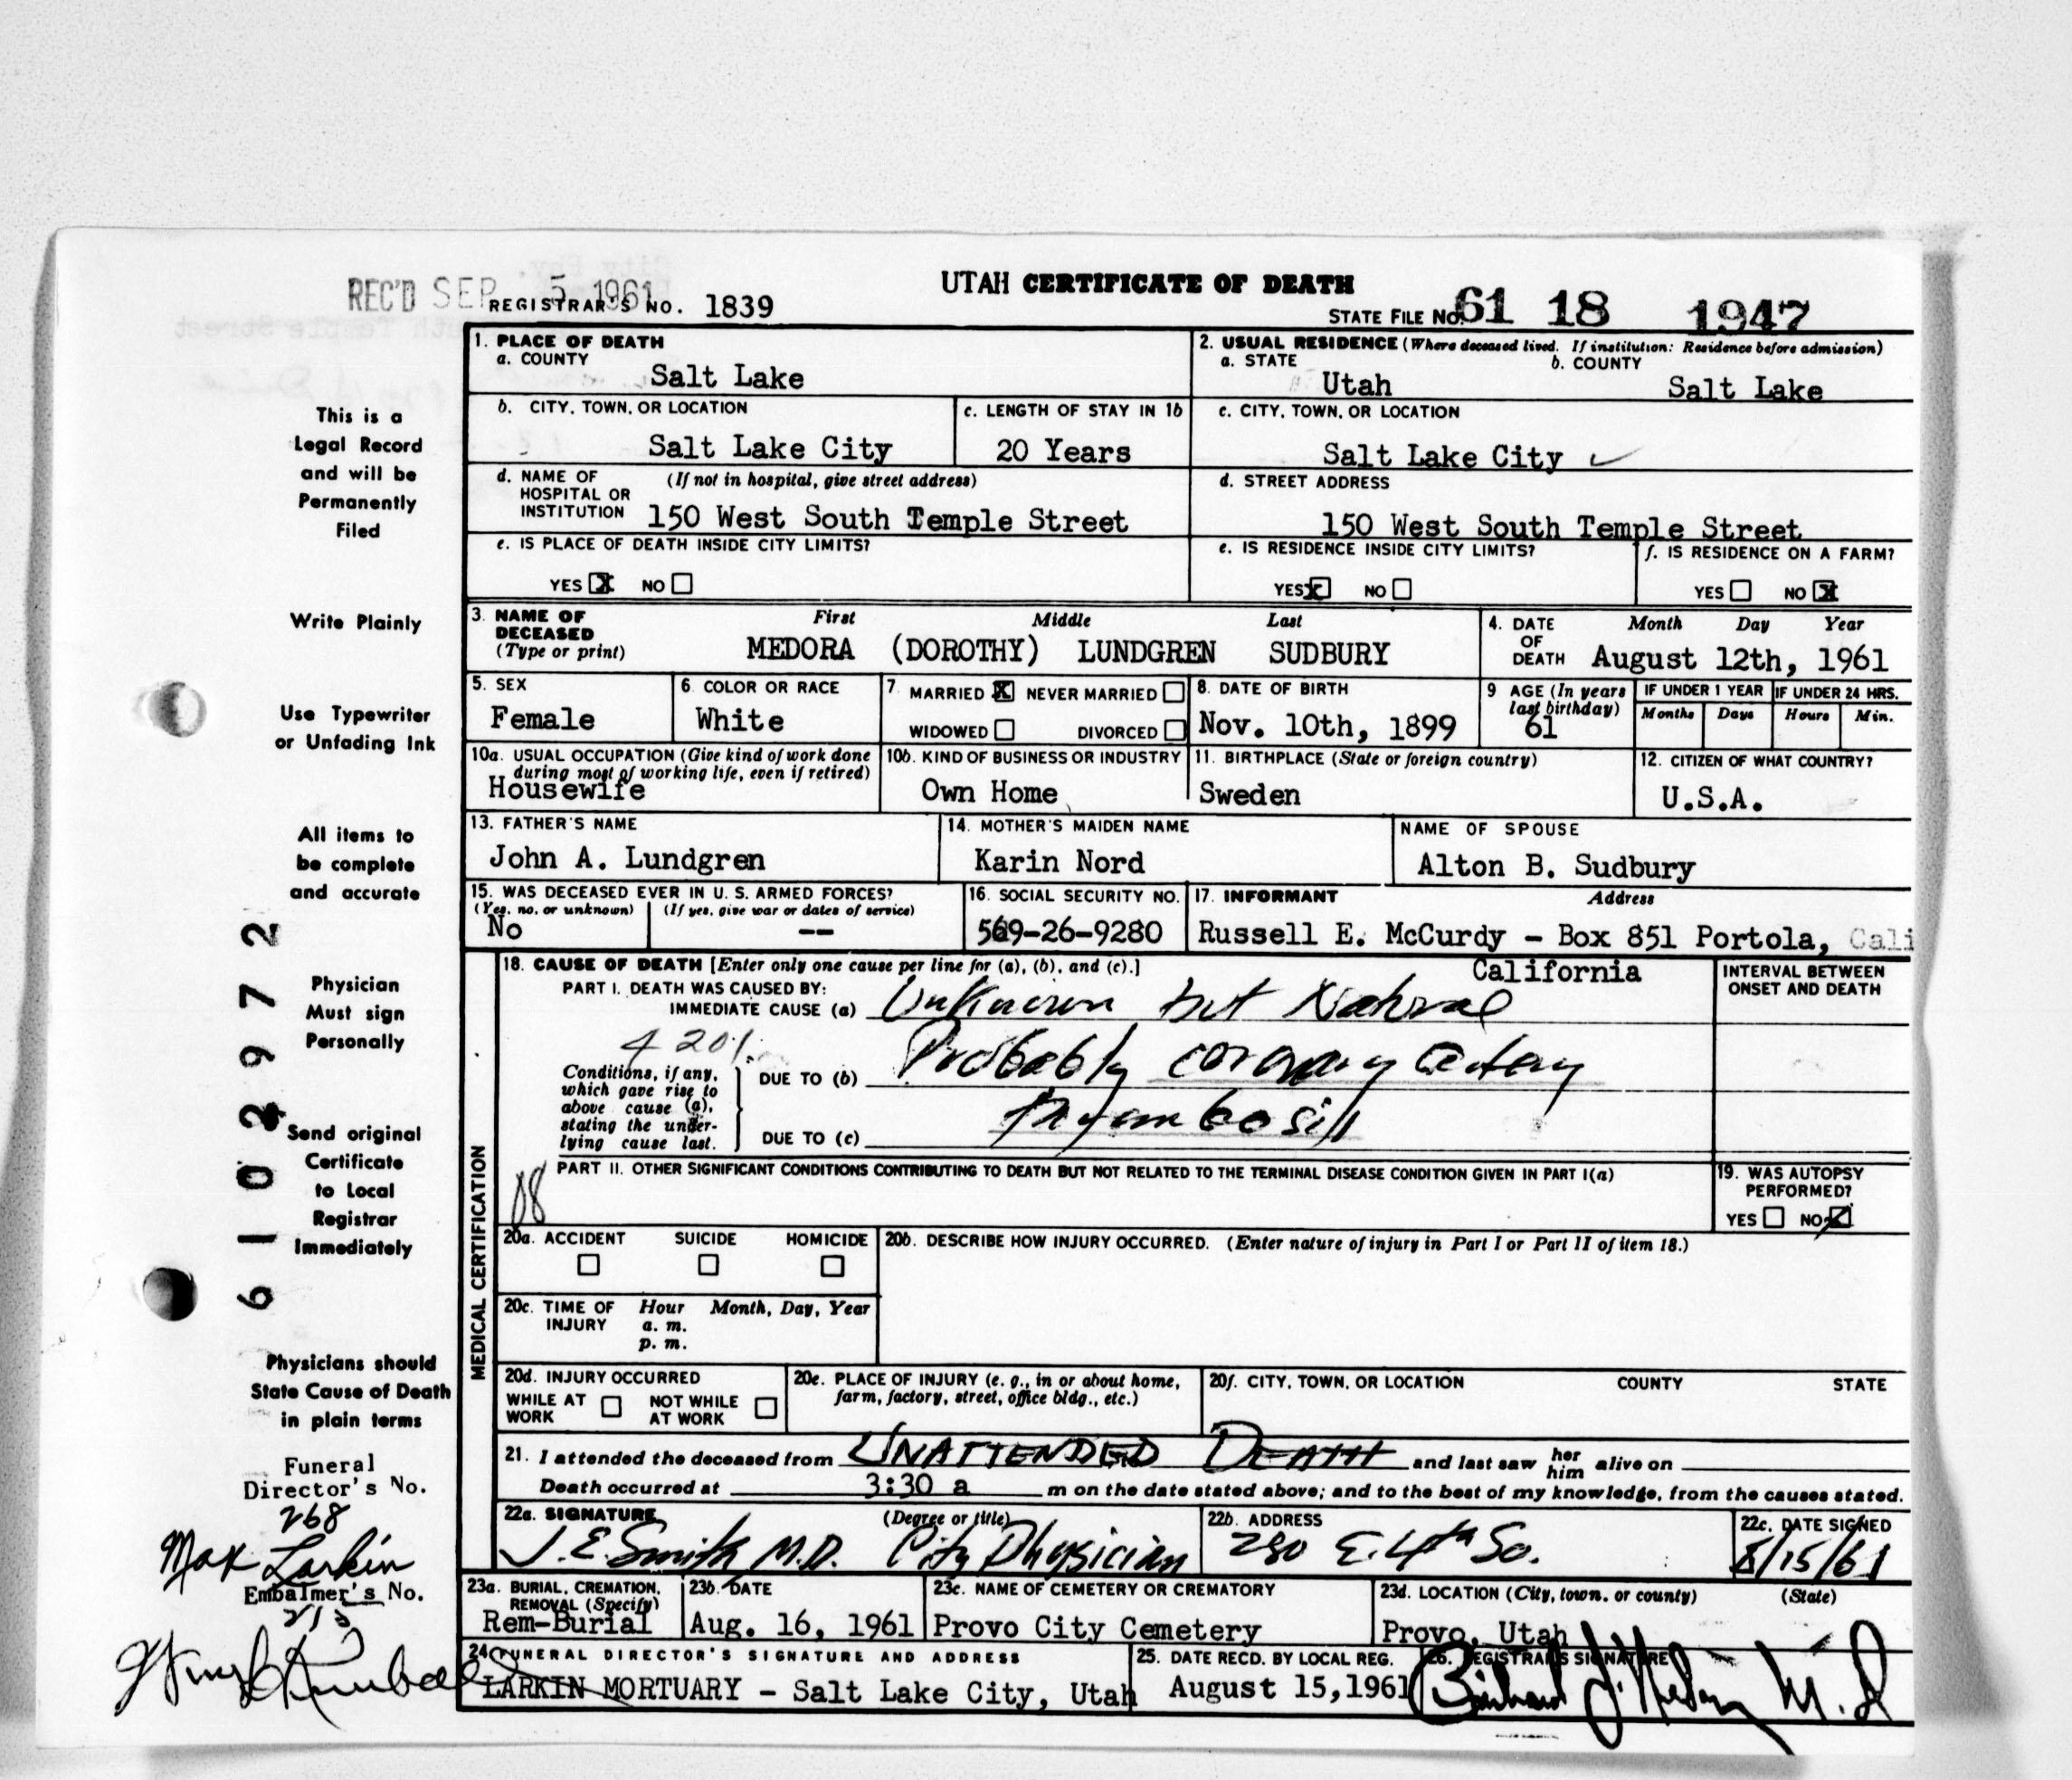 REC'D SEP 5 1961
UTAH CERTIFICATE OF DEATH
REGISTRAR'S NO. 1839
STATE FILE NO. 61 18 1947
1. PLACE OF DEATH
a. COUNTY
Salt Lake
2. USUAL RESIDENCE (Where deceased lived. If institution: Residence before admission)
a. STATE b. COUNTY
Utah Salt Lake
b. CITY, TOWN, OR LOCATION
Salt Lake City
c. LENGTH OF STAY IN 1b
20 Years
c. CITY, TOWN, OR LOCATION
Salt Lake City
d. NAME OF HOSPITAL OR INSTITUTION (If not in hospital, give street address)
150 West South Temple Street
d. STREET ADDRESS
150 West South Temple Street
e. IS PLACE OF DEATH INSIDE CITY LIMITS?
YES X NO
e. IS RESIDENCE INSIDE CITY LIMITS?
YES X NO
f. IS RESIDENCE ON A FARM?
YES NO X
3. NAME OF DECEASED (Type or print)
First Middle Last
MEDORA (DOROTHY) LUNDGREN SUDBURY
4. DATE OF DEATH
Month Day Year
August 12th, 1961
5. SEX
Female
6. COLOR OR RACE
White
7. MARRIED X NEVER MARRIED
WIDOWED DIVORCED
8. DATE OF BIRTH
Nov. 10th, 1899
9 AGE (In years last birthday)
61
IF UNDER 1 YEAR
Months Days
IF UNDER 24 HRS.
Hours Min.
10a. USUAL OCCUPATION (Give kind of work done
during most of working life, even if retired)
Housewife
10b. KIND OF BUSINESS OR INDUSTRY
Own Home
11. BIRTHPLACE (State or foreign country)
Sweden
12. CITIZEN OF WHAT COUNTRY?
U.S.A.
13. FATHER'S NAME
John A. Lundgren
14. MOTHER'S MAIDEN NAME
Karin Nord
NAME OF SPOUSE
Alton B. Sudbury
15. WAS DECEASED EVER IN U. S. ARMED FORCES?
(Yes, no, or unknown) (If yes, give war or dates of service)
No --
16. SOCIAL SECURITY NO.
569-26-9280
17. INFORMANT Address
Russell E. McCurdy - Box 851 Portola, Cali
California
MEDICAL CERTIFICATION
18. CAUSE OF DEATH [Enter only one cause per line for (a), (b), and (c).]
PART I. DEATH WAS CAUSED BY:
IMMEDIATE CAUSE (a) Unknown but Natural
4201
Conditions, if any,
which gave rise to
above cause (a),
stating the under-
lying cause last.
DUE TO (b) Probably coronary artery
DUE TO (c) thrombosis
INTERVAL BETWEEN
ONSET AND DEATH
PART II. OTHER SIGNIFICANT CONDITIONS CONTRIBUTING TO DEATH BUT NOT RELATED TO THE TERMINAL DISEASE CONDITION GIVEN IN PART I(a)
19. WAS AUTOPSY
PERFORMED?
YES NO
20a. ACCIDENT SUICIDE HOMICIDE
20b. DESCRIBE HOW INJURY OCCURRED. (Enter nature of injury in Part I or Part II of item 18.)
20c. TIME OF INJURY Hour Month, Day, Year
a. m.
p. m.
20d. INJURY OCCURRED
WHILE AT WORK NOT WHILE AT WORK
20e. PLACE OF INJURY (e. g., in or about home,
farm, factory, street, office bldg., etc.)
20f. CITY, TOWN, OR LOCATION COUNTY STATE
21. I attended the deceased from UNATTENDED DEATH and last saw her him alive on
Death occurred at 3:30 a m on the date stated above; and to the best of my knowledge, from the causes stated.
22a. SIGNATURE (Degree or title)
J. E. Smith M.D. City Physician
22b. ADDRESS
280 E. 4th So.
22c. DATE SIGNED
8/15/61
23a. BURIAL, CREMATION,
REMOVAL (Specify)
Rem-Burial
23b. DATE
Aug. 16, 1961
23c. NAME OF CEMETERY OR CREMATORY
Provo City Cemetery
23d. LOCATION (City, town, or county) (State)
Provo, Utah
24. FUNERAL DIRECTOR'S SIGNATURE AND ADDRESS
LARKIN MORTUARY - Salt Lake City, Utah
25. DATE RECD. BY LOCAL REG.
August 15,1961
26. REGISTRAR'S SIGNATURE
M. D
This is a
Legal Record
and will be
Permanently
Filed
Write Plainly
Use Typewriter
or Unfading Ink
All items to
be complete
and accurate
Physician
Must sign
Personally
Send original
Certificate
to Local
Registrar
Immediately
Physicians should
State Cause of Death
in plain terms
61029 72
Funeral
Director's No.
268
Max Larkin
Embalmer's No.
213